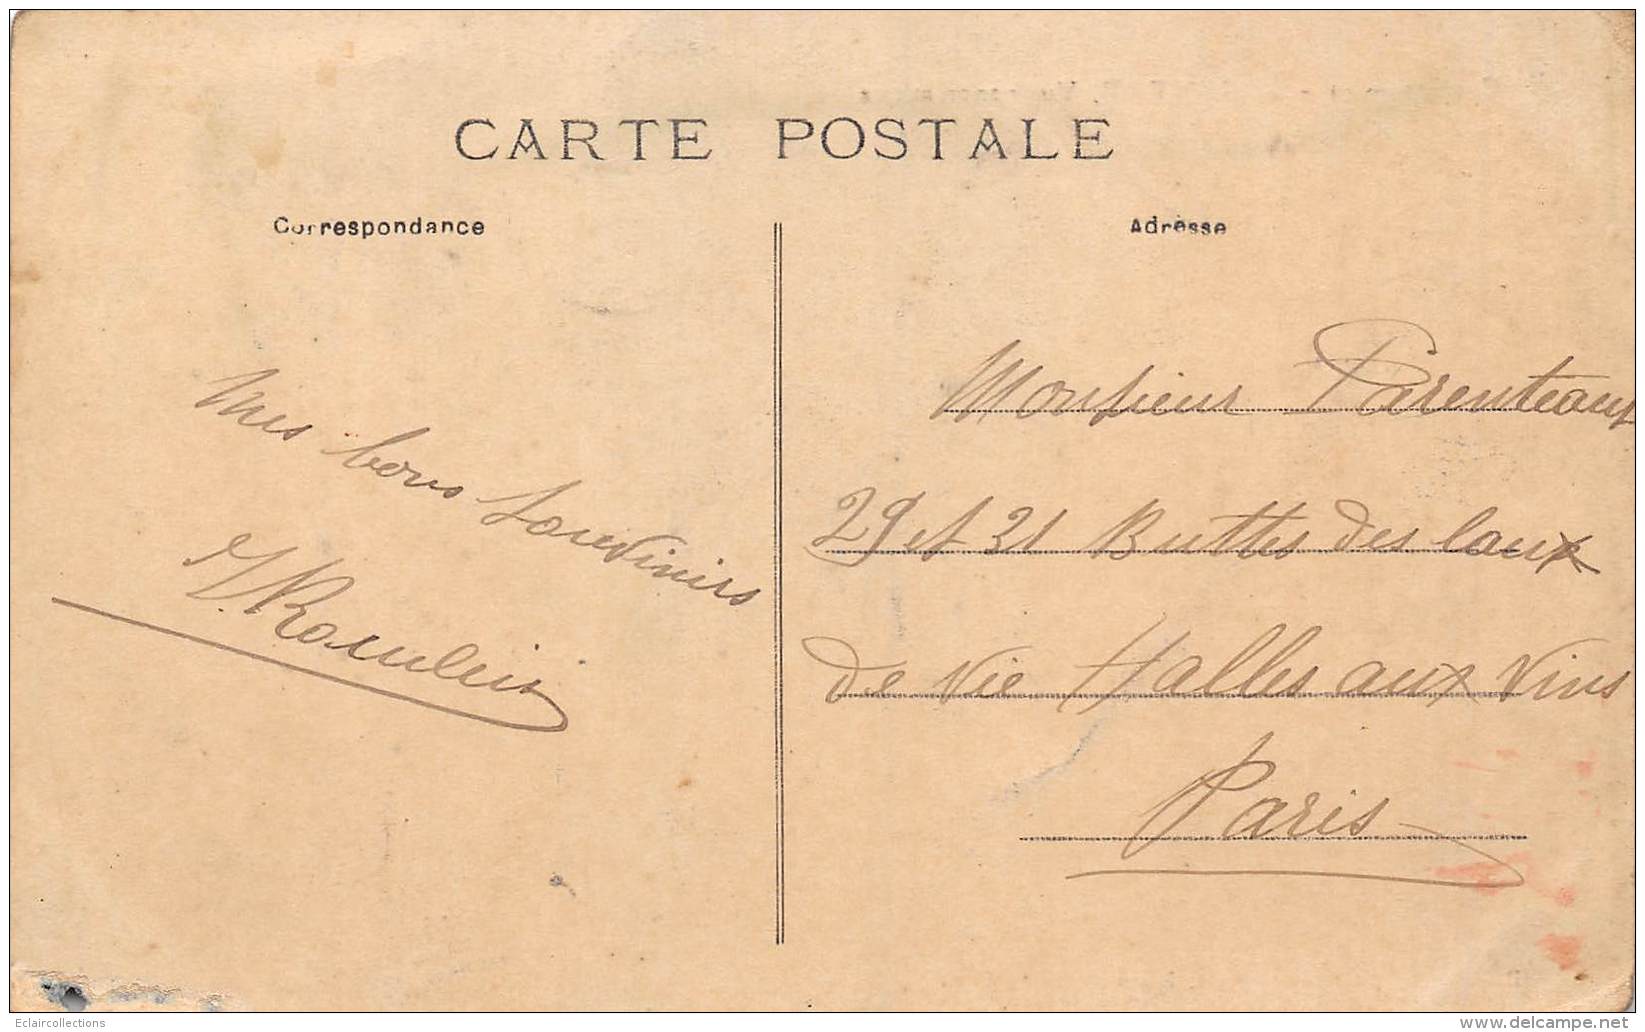 CARTE POSTALE
Correspondance
Adresse
Mes bons Souvenirs
Monsieur Parenteau
29 et 31 Buttes des Eaux
de vie Halles aux Vins
Paris
Eclaircollections
www.delcampe.net